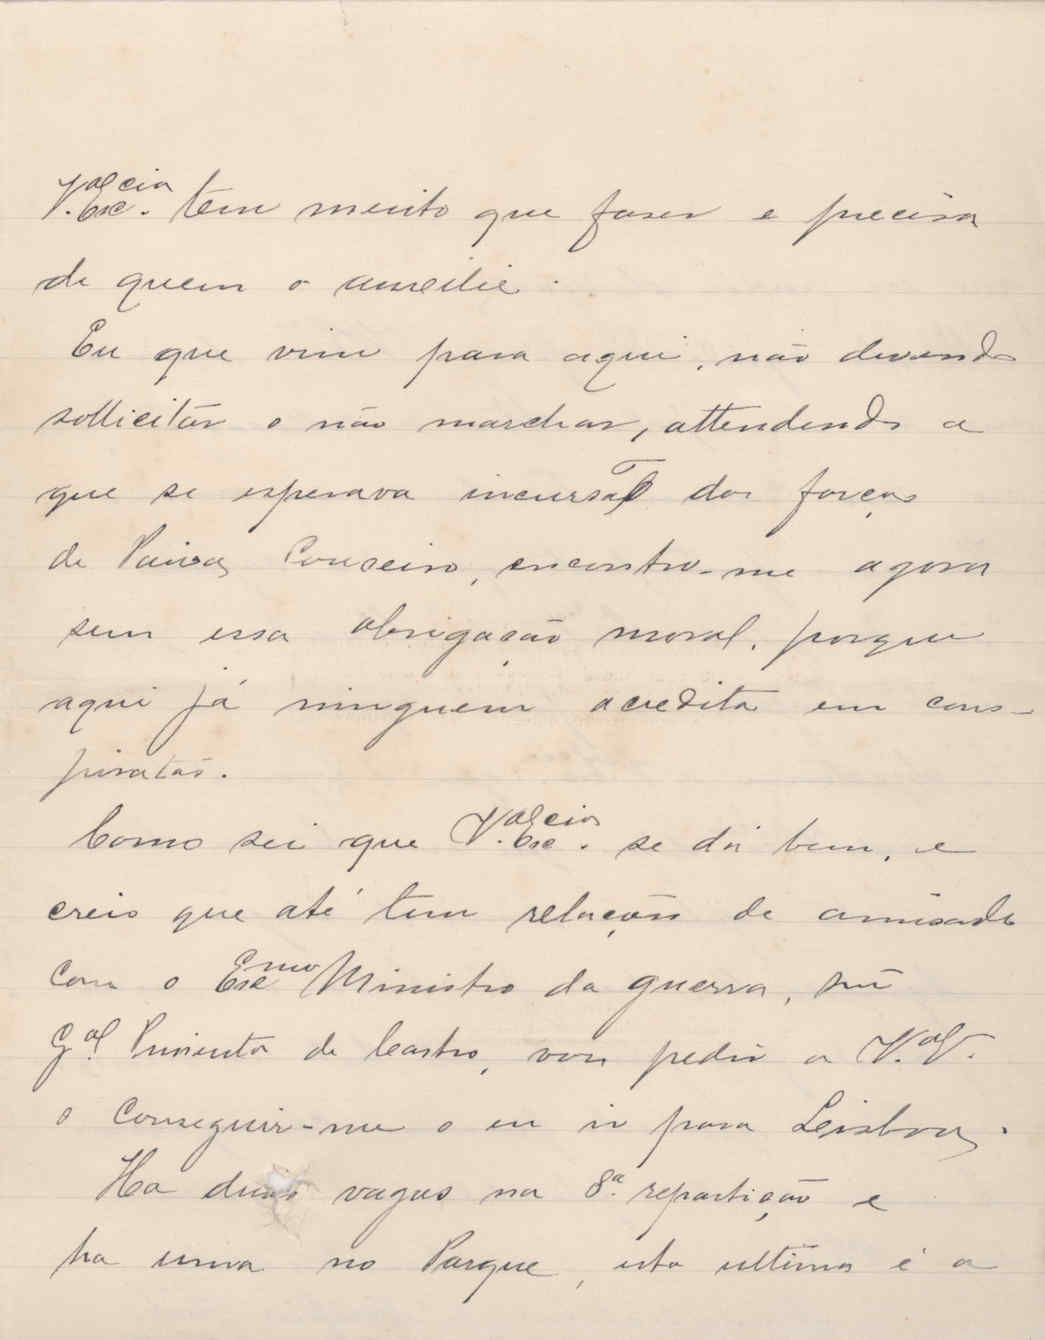 V.ª Ex.cia tem muito que faser e precisa
de quem o auxilie.
Eu que vim para aqui, não devendo
sollicitar o não marchar, attendendo a
que se esperava incursão das forças
de Paiva Couceiro, encontro-me agora
sem essa obrigação moral, porque
aqui já ninguem acredita em cons-
piratas.
Como sei que V.ª Ex.cia se dá bem, e
creio que até tem relações de amisade
com o Exmo Ministro da guerra, snr
G.al Pimenta de Castro, vou pedir a V.ª
o conseguir-me o eu ir para Lisboa.
Ha duas vagas na 8.ª repartição e
ha uma no Parque, esta ultima é a